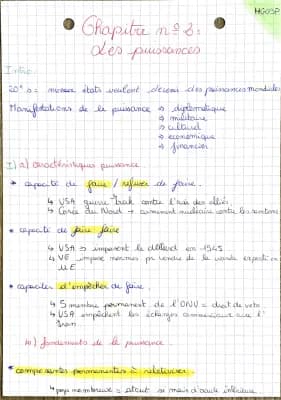 HGGSP
Chapitre n°2 :
Les puissances
Intro
20° s : nouveaux états veulent devenir des puissances mondiales
Manifestations de la puissance → diplomatique
→ militaire
→ culturel
→ économique
→ financier
I) a) caractéristiques puissance
• capacité de faire / refuser de faire.
↳ USA guerre Irak contre l'avis des alliés
↳ Corée du Nord → armement nucléaire contre les
• capacité de faire faire
↳ USA → imposent le dollard en 1945
↳ UE impose normes pr vendre de la viande
UE
• capacités d'empêcher de faire.
↳ 5 membre permanent de l'ONU = droit de veto.
↳ USA empêchent les échanges commerciaux avec l'
Iran
fondements de la puissance.
• composantes permanentes à relativiser.
↳ pays membreuse = atout si main d'œuvre